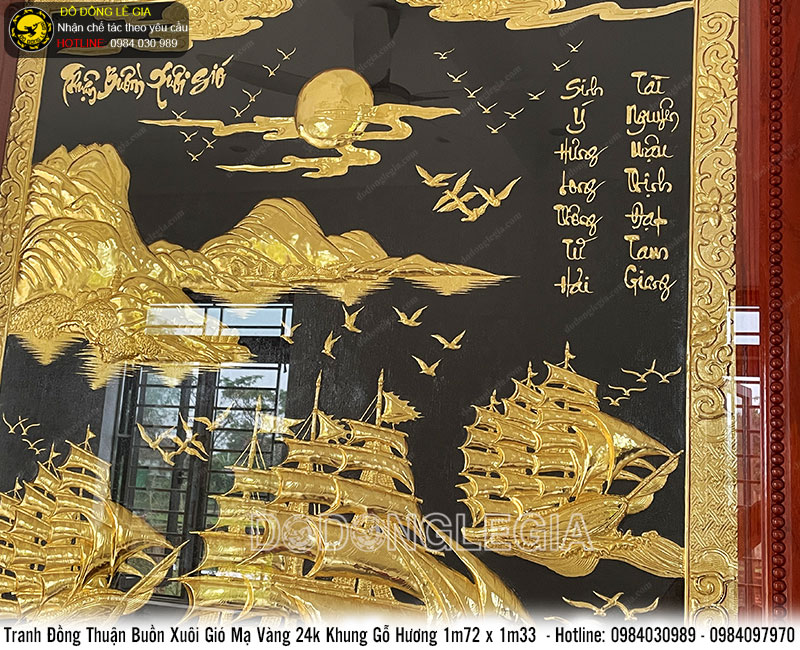 ĐỒ ĐỒNG LÊ GIA
Nhận chế tác theo yêu cầu
HOTLINE: 0984 030 989
Thuận Buồm Xuôi Gió
Sinh
Ý
Hưng
Long
Thông
Tứ
Hải
Tài
Nguyên
Mậu
Thịnh
Đạt
Tam
Giang
DODONGLEGIA
Tranh Đồng Thuận Buồn Xuôi Gió Mạ Vàng 24k Khung Gỗ Hương 1m72 x 1m33 - Hotline: 0984030989 - 0984097970